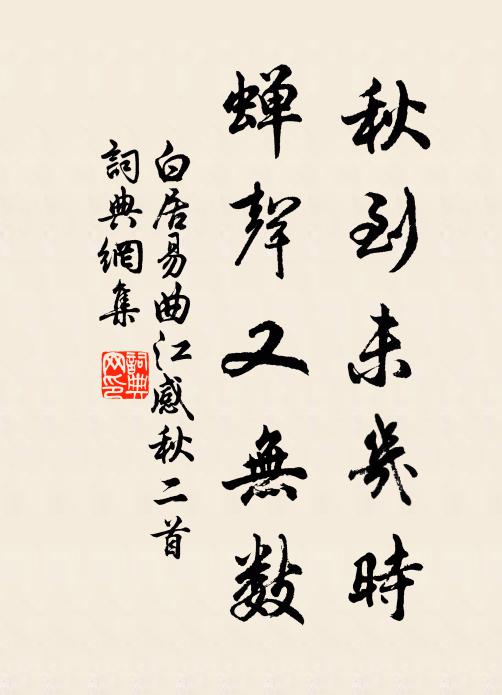 秋到未幾時
蟬聲又無數
白居易曲江感秋二首
詞典網集
詞典網印